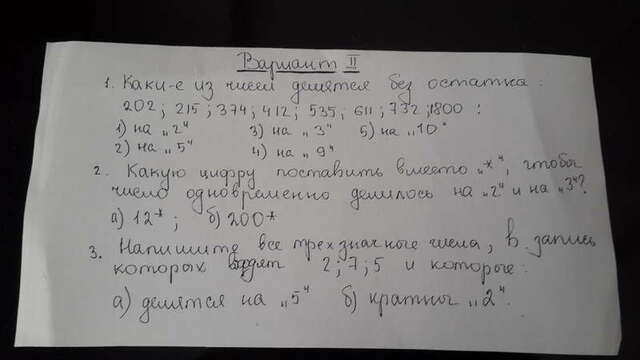 Вариант II
1. Каки-е из чисел делятся без остатка:
202; 215; 374; 412; 535; 611; 732; 1800:
1) на „2“ 3) на „3“ 5) на „10“
2) на „5“ 4) на „9“
2. Какую цифру поставить вместо „*“, чтобы
число одновременно делилось на „2“ и на „3“?
а) 12*; б) 200*
3. Напишите все трехзначные числа, в запись
которых входят 2; 7; 5 и которые:
а) делятся на „5“ б) кратны „2“.